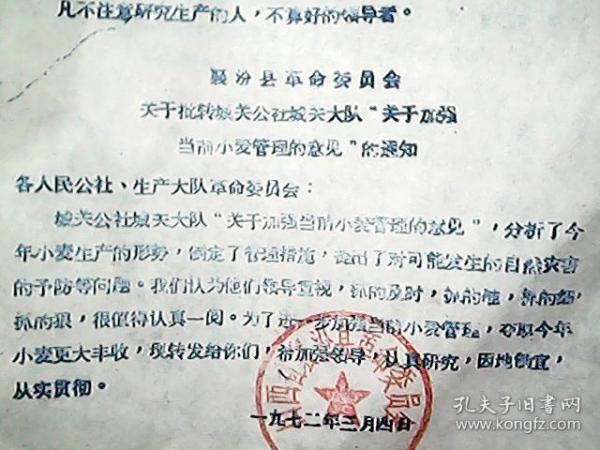 凡不注意研究生产的人，不算好的领导者。
襄汾县革命委员会
关于批转城关公社城关大队“关于加强
当前小麦管理的意见”的通知
各人民公社、生产大队革命委员会：
城关公社城关大队“关于加强当前小麦管理的意见”，分析了今
年小麦生产的形势，制定了管理措施，提出了对可能发生的自然灾害
的予防等问题。我们认为他们领导重视，抓的及时，抓的准，抓的细，
抓的狠，很值得认真一阅。为了进一步加强当前小麦管理，夺取今年
小麦更大丰收，现转发给你们，希加强领导，认真研究，因地制宜，
从实贯彻。
一九七二年三月四日
山西省襄汾县革命委员会
孔夫子旧书网
www.kongfz.com